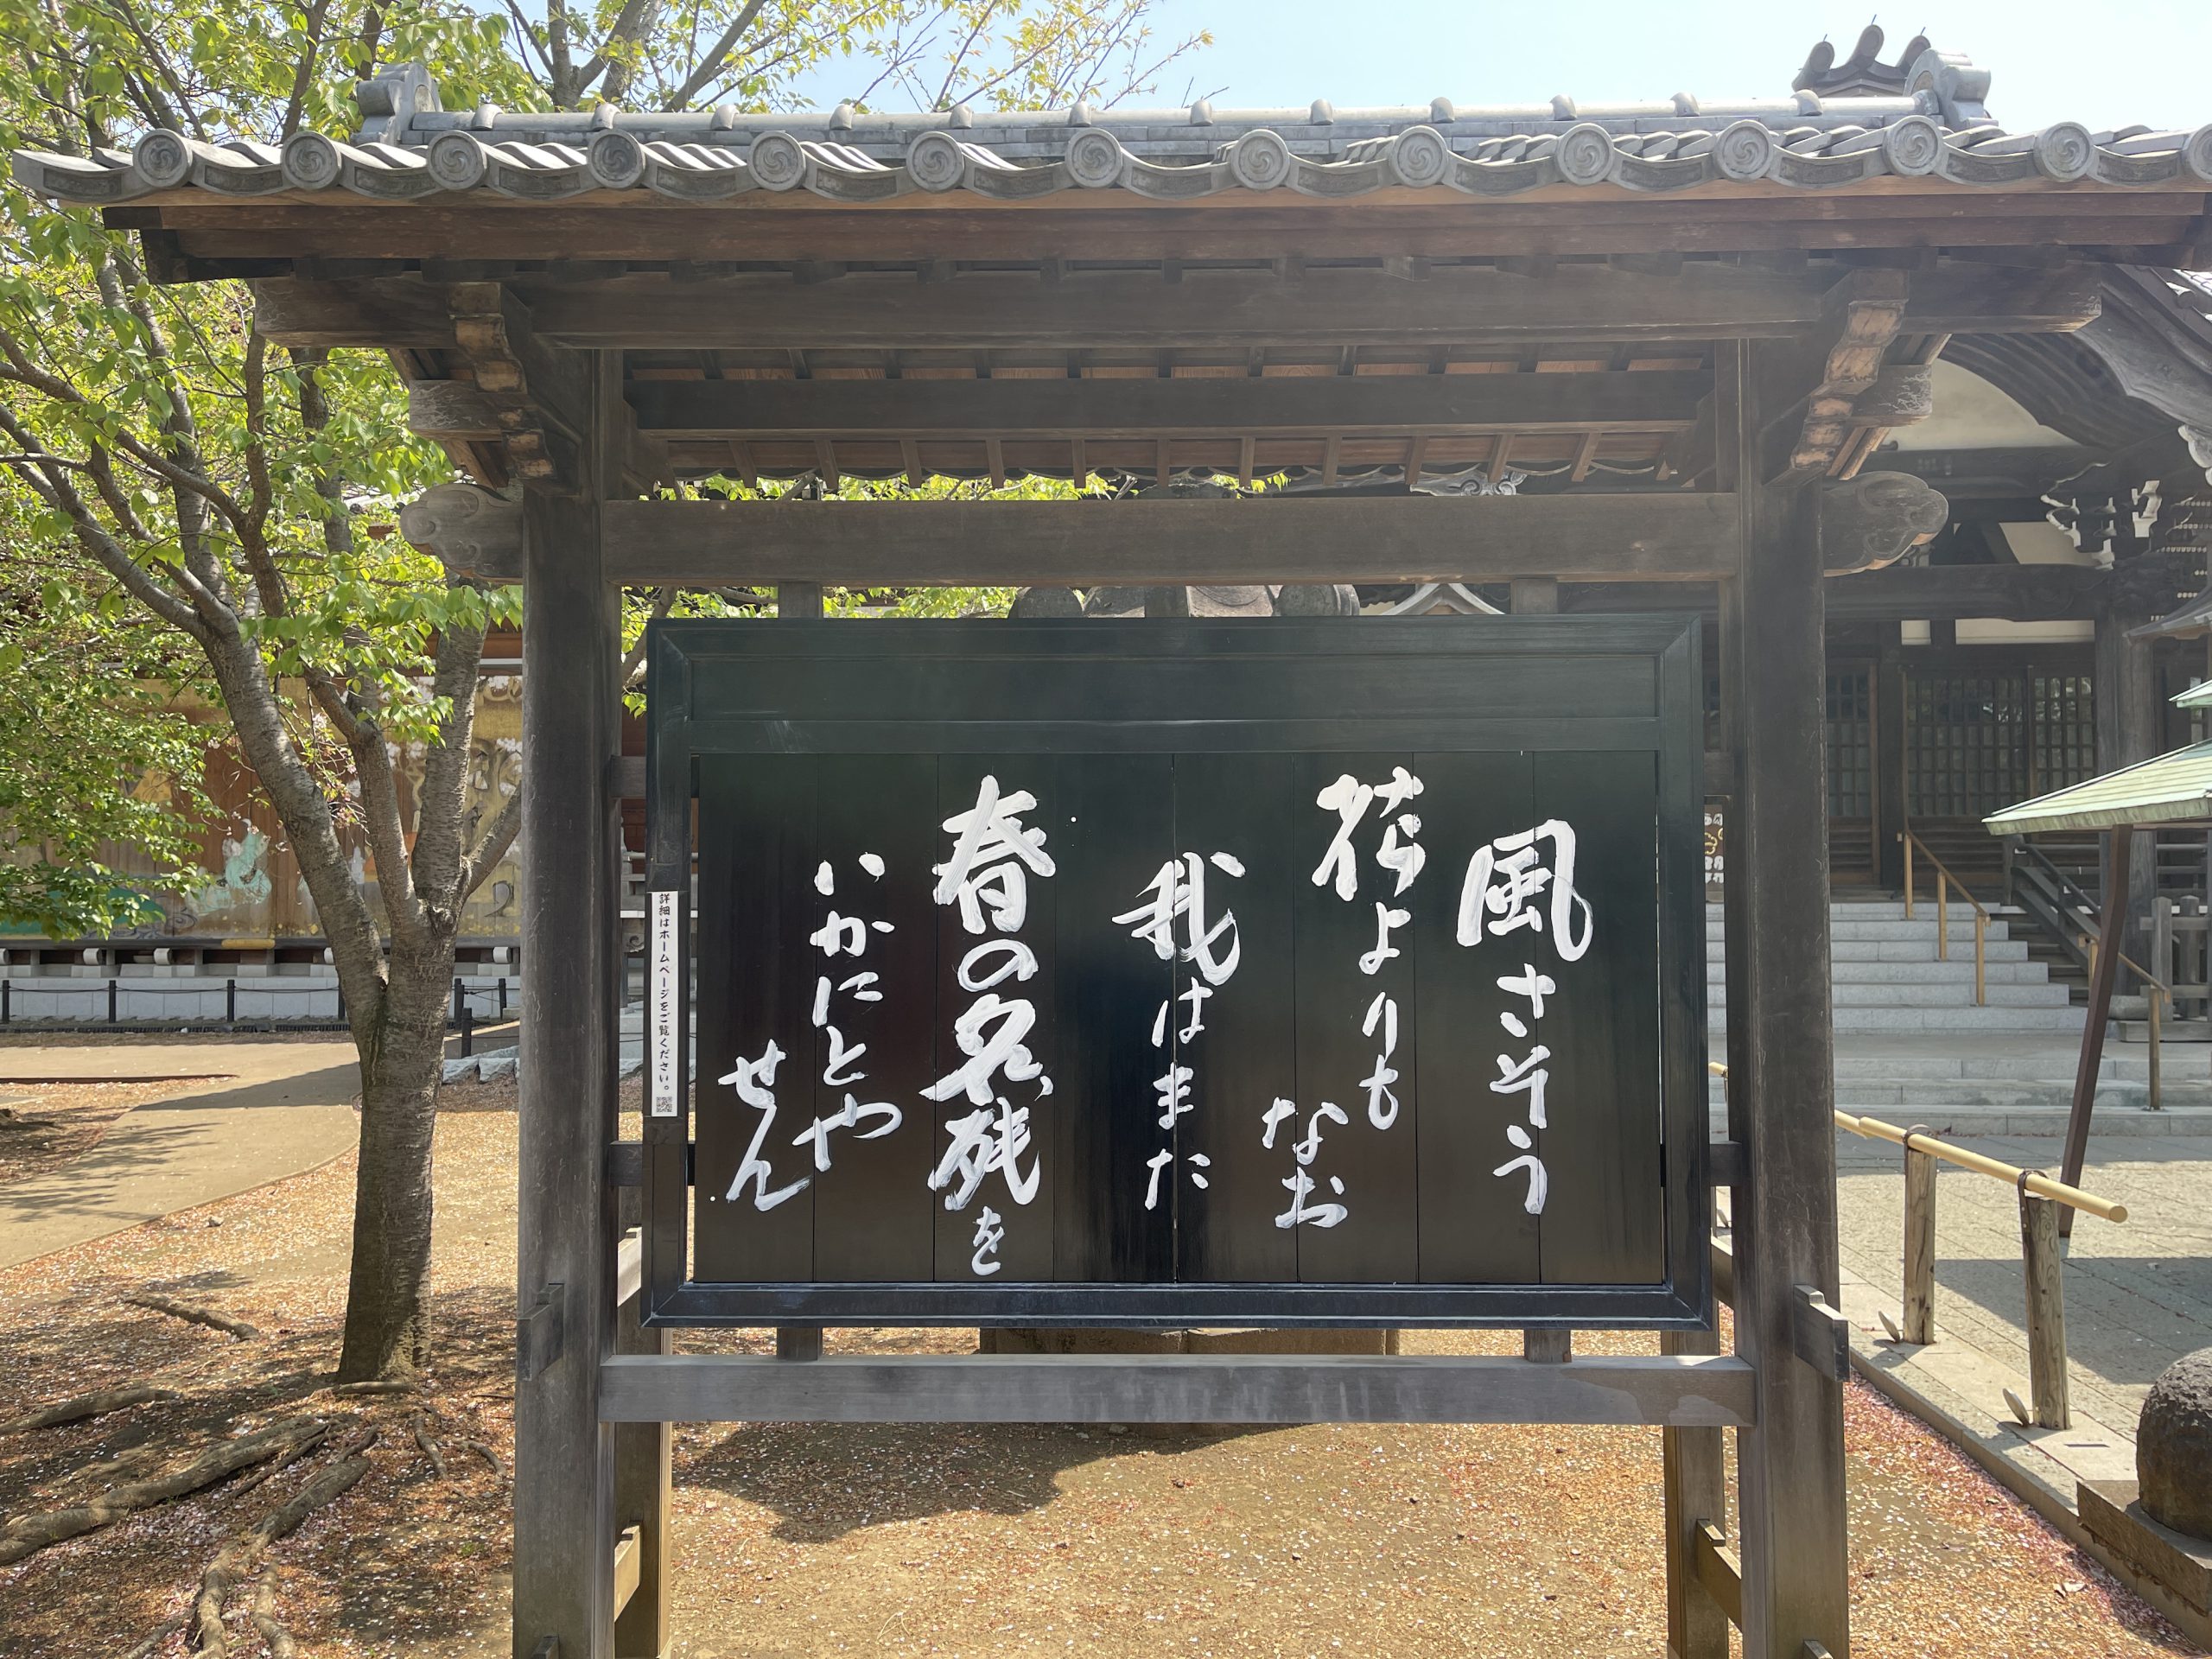 風さそう
花よりも
なお
我はまた
春の名残を
いかにとや
せん
詳細はホームページをご覧ください。